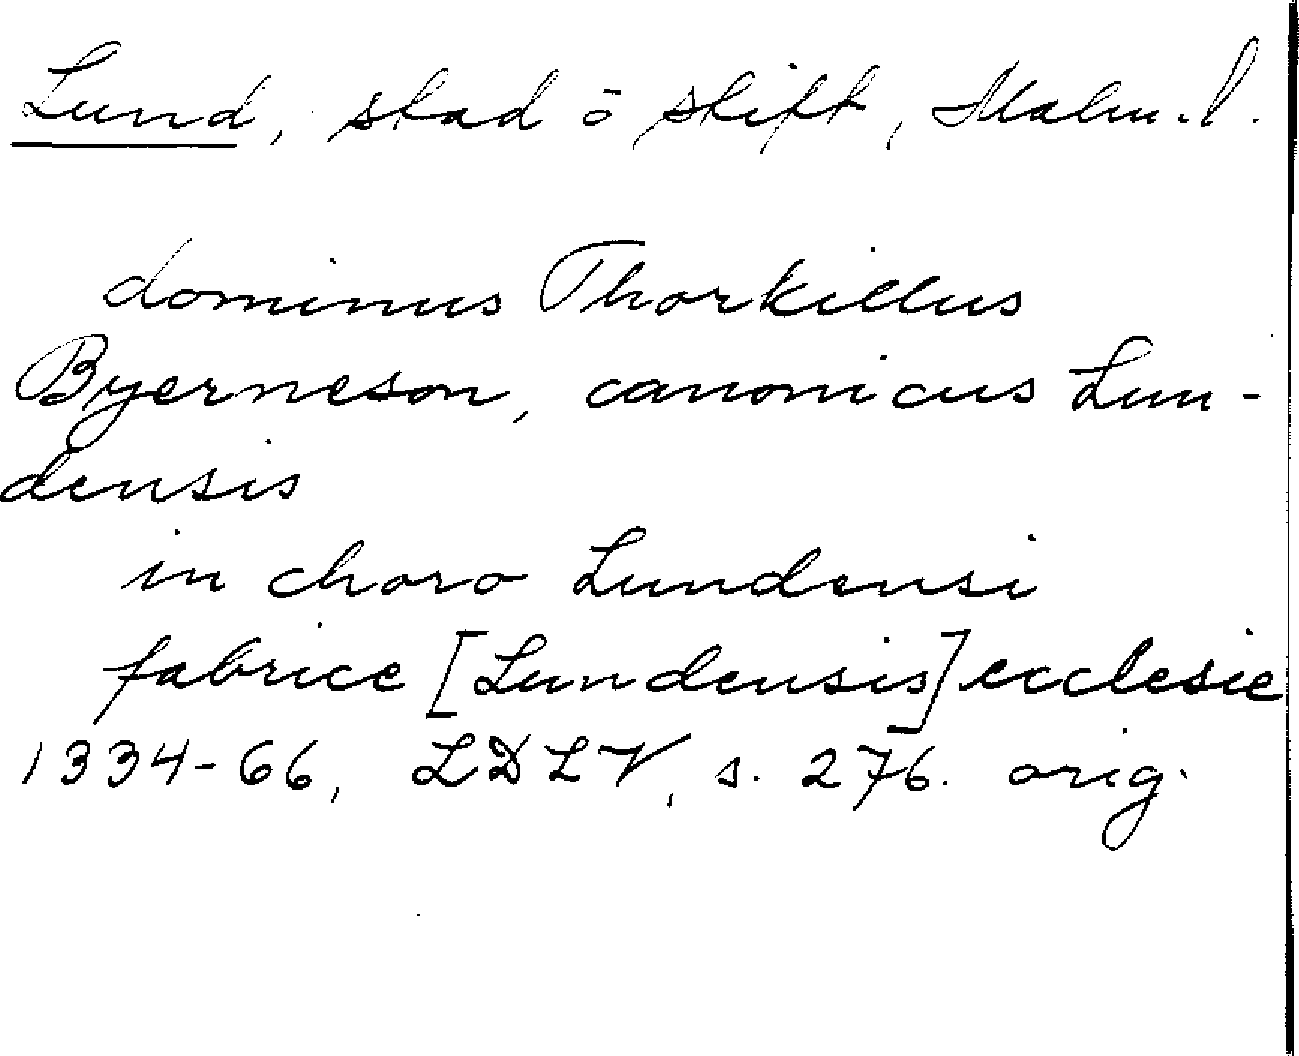 Lund, stad o̅ stift, Malm. l.
dominus Thorkillus
Byerneson, canonicus Lun-
densis
in choro Lundensi
fabrice [Lundensis] ecclesie
1334-66, LDLV, s. 276. orig.